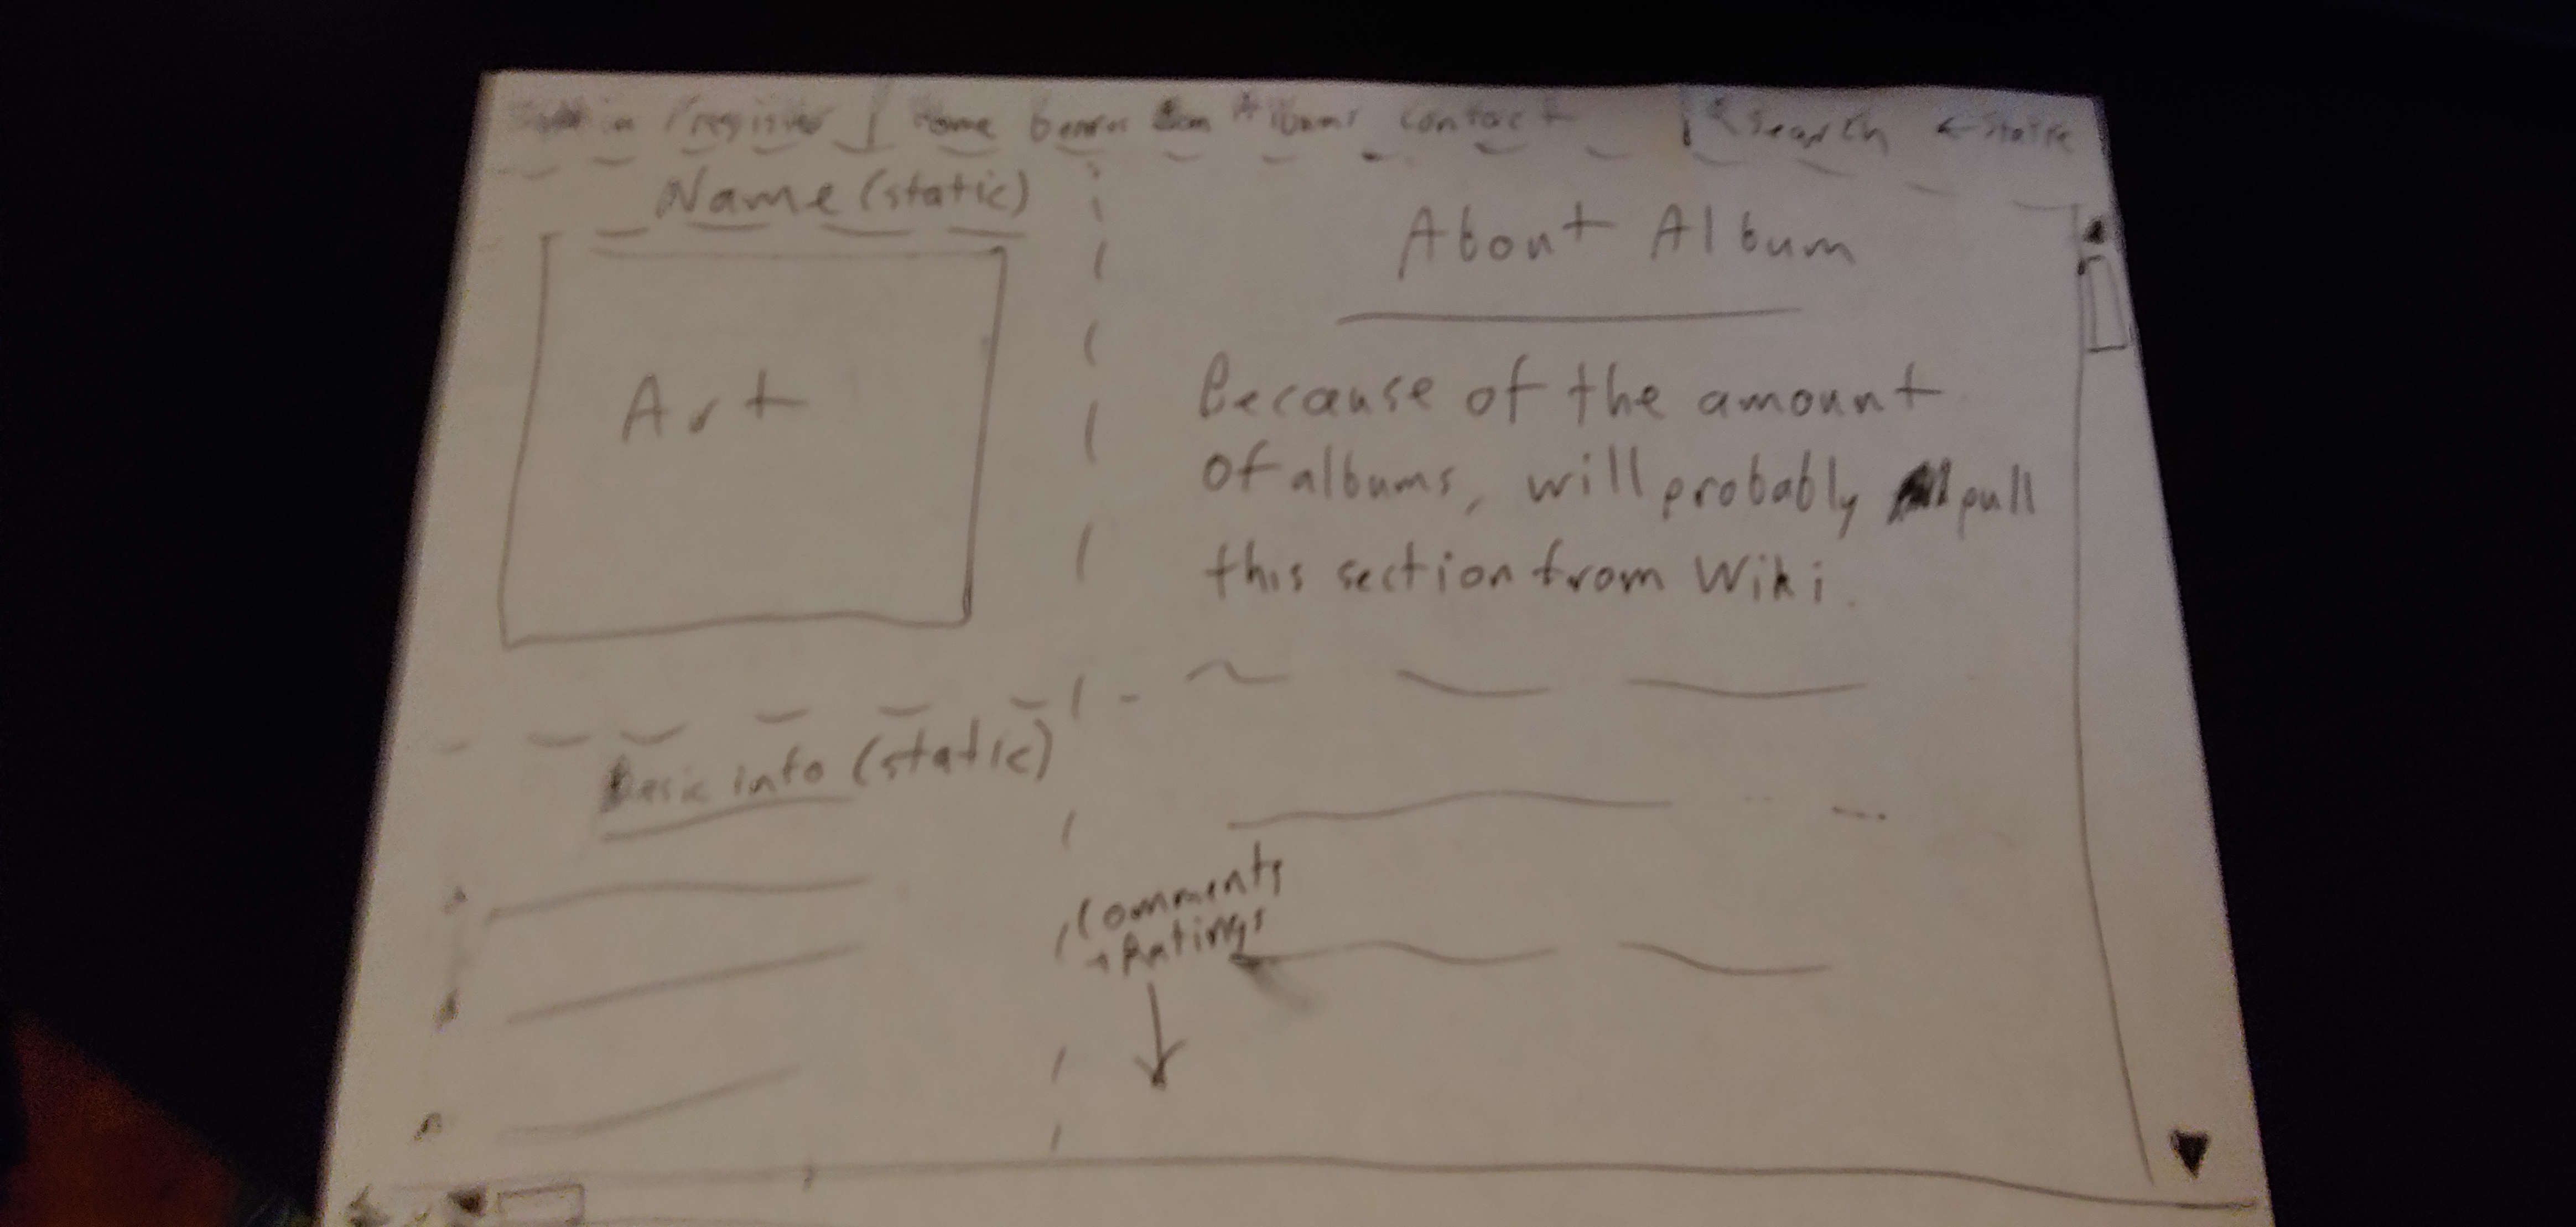 in / register | Home Albums contact Search ← static
Name (static)
Art
About Album
Because of the amount
of albums, will probably pull
this section from Wiki.
Basic info (static)
Comments
+ Ratings